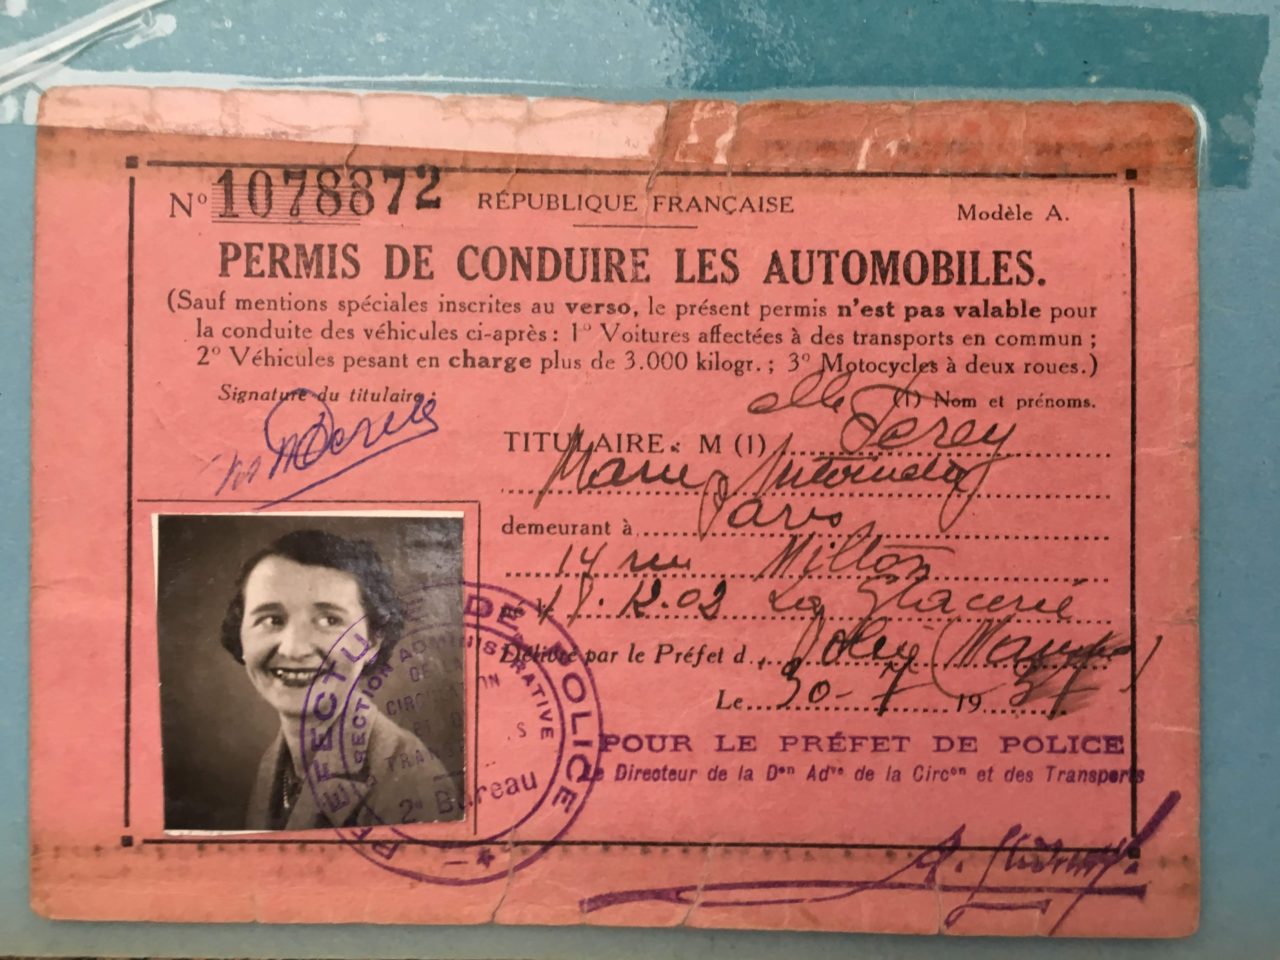 Nº 1078872 RÉPUBLIQUE FRANÇAISE Modèle A.
PERMIS DE CONDUIRE LES AUTOMOBILES.
(Sauf mentions spéciales inscrites au verso, le présent permis n'est pas valable pour
la conduite des véhicules ci-après : 1º Voitures affectées à des transports en commun ;
2º Véhicules pesant en charge plus de 3.000 kilogr. ; 3º Motocycles à deux roues.)
Signature du titulaire :
(1) Nom et prénoms.
elle
TITULAIRE : M (1) Ferey
Marie Antoinette
demeurant à Paris
14 rue Milton
le 17.12.02 La Glacerie
Délivré par le Préfet d Police (Manche)
Le 30-7 1937
POUR LE PRÉFET DE POLICE
Le Directeur de la Dºⁿ Adᵛᵉ de la Circºⁿ et des Transports
PRÉFECTURE DE POLICE
SECTION ADMINISTRATIVE
DE LA
CIRCULATION
ET DES
TRANSPORTS
2º Bureau